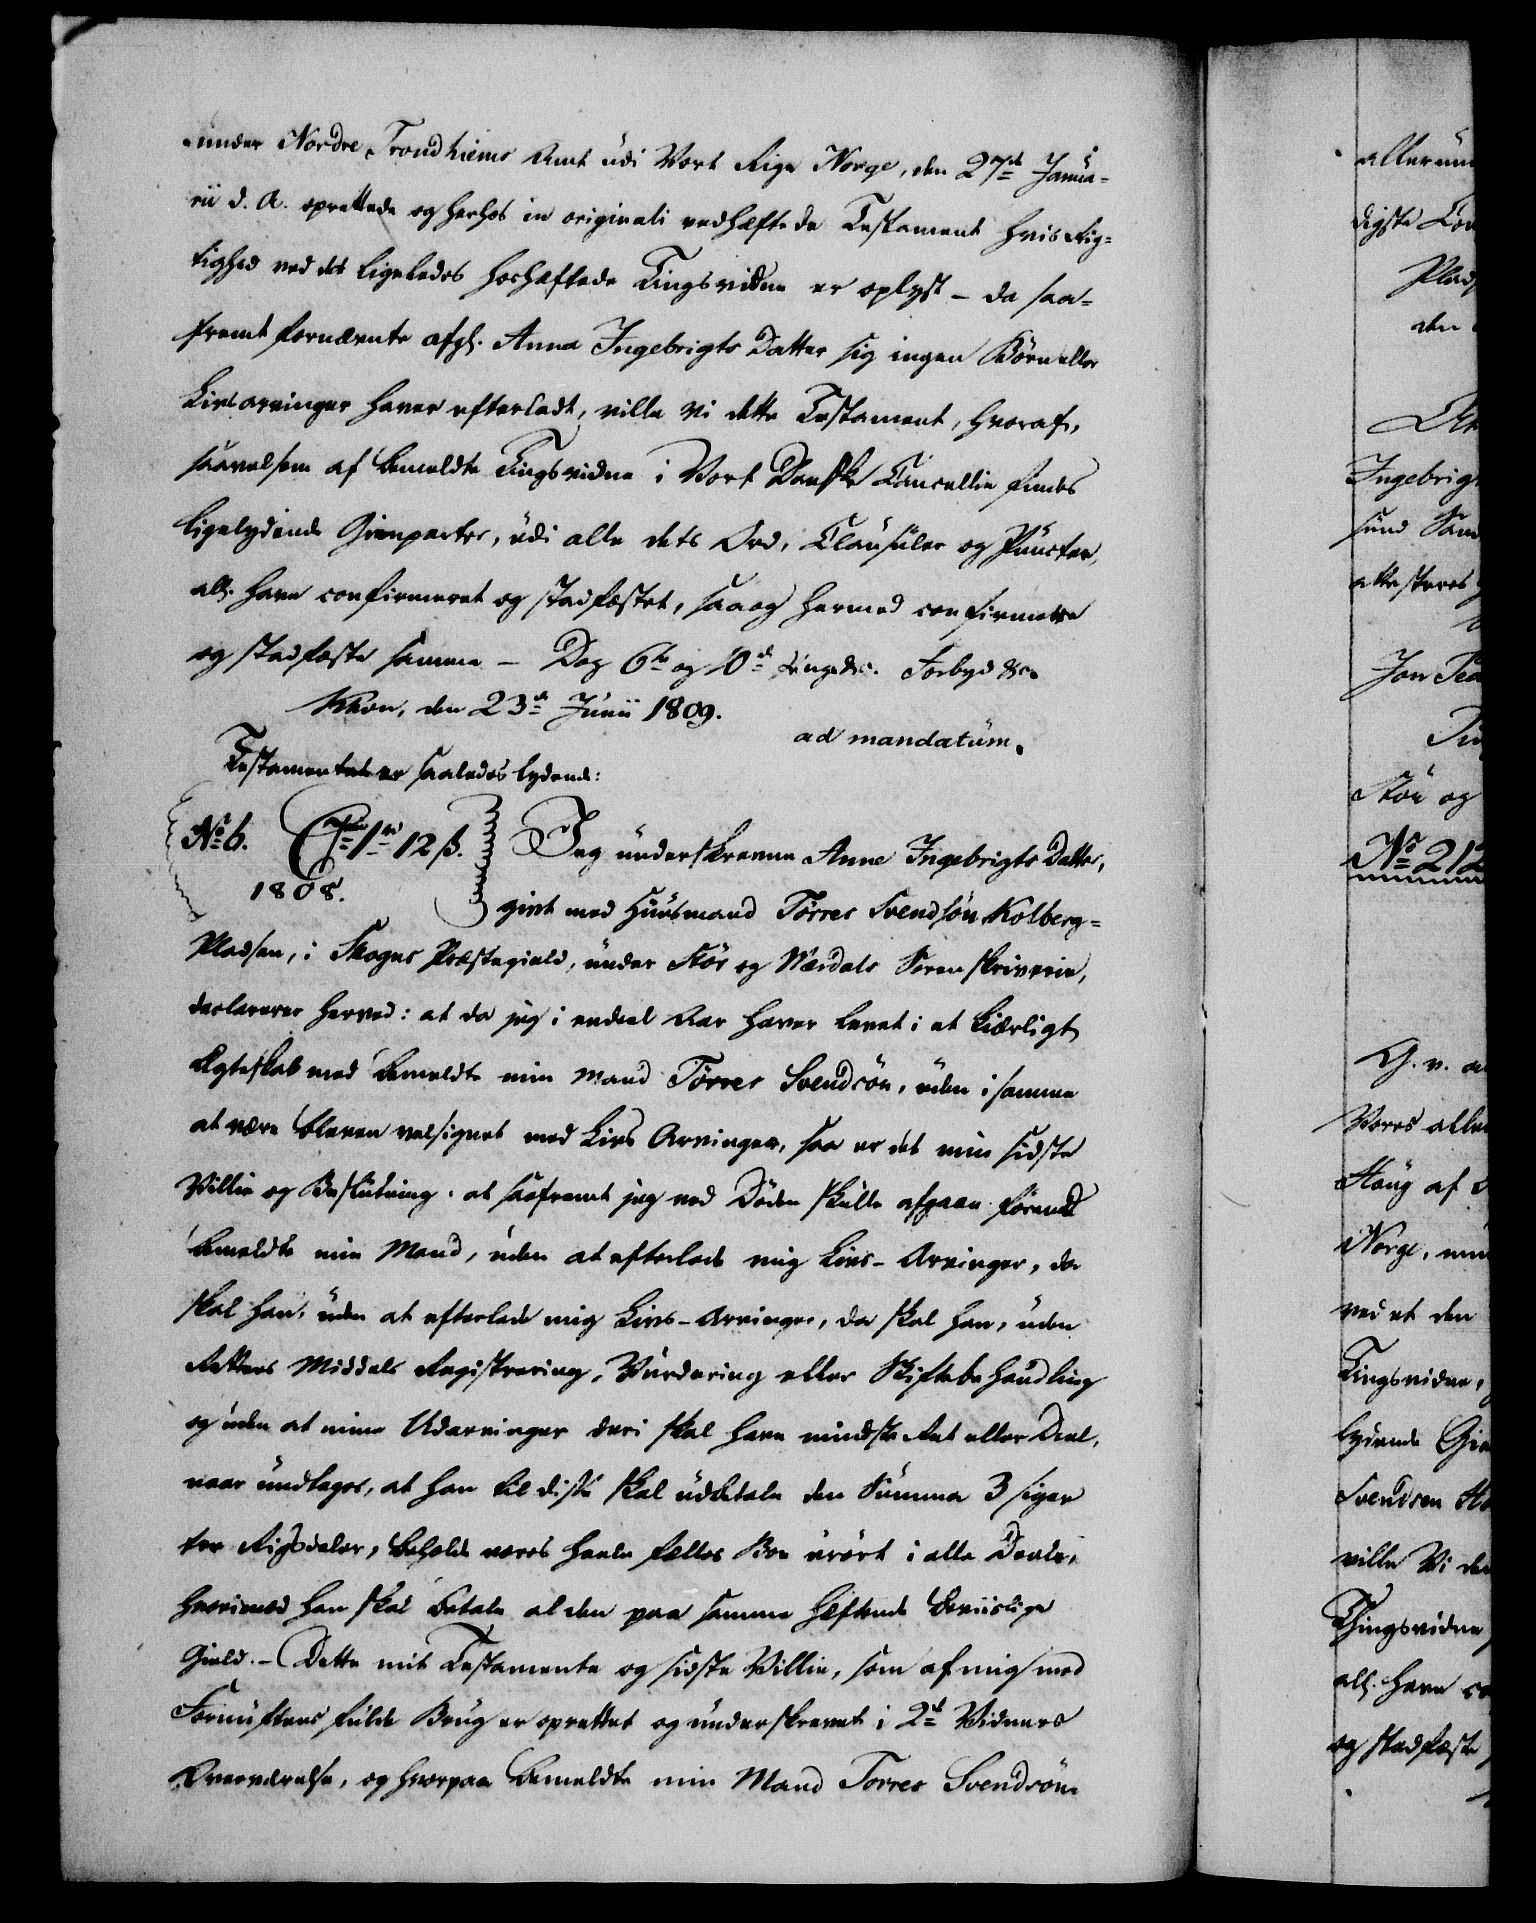 under Nordre Trondhiems Amt udi Vort Rige Norge, den 27de Janua-
rii d. A. oprettede og herhos in originali vedhæftede Testament hvis Rig-
tighed ved det ligeledes hoshæftede Tingsvidne er oplyst - da saa-
fremt fornævnte afg. Anna Ingebrigts Datter sig ingen Börn eller
Livsarvinger haver efterladt, ville Vi dette Testament, hvoraf,
saavelsom af bemeldte Tingsvidne i Vort Danske Cancellie findes
ligelydende Gienparter, udi alle dets Ord, Clausuler og Puncter,
all. have confirmeret og stadfæstet, saa og hermed confirmere
og stadfæste samme - Dog 6te og 10de Penge &c. Forbyd &c.
Khvn, den 23de Junii 1809.
ad mandatum.
Testamentet er saaledes lydende:
No 6. 12 ß. Jeg underskrevne Anne Ingebrigts Datter,
1808. givt med Huusmand Törres Svendsön Kolberg-
Pladsen, i Skogns Præstegield, under Stör og Værdals Sorenskriverie,
declarerer herved: at da jeg i endeel Aar haver levet i et kiærligt
Ægteskab med bemeldte min Mand Törres Svendsön, uden i samme
at være bleven velsignet med Livs Arvinger, saa er det min sidste
Villie og Beslutning, at saafremt jeg ved Döden skulle afgaae förend
bemeldte min Mand, uden at efterlade mig Livs-Arvinger, da
skal han, uden at efterlade mig Livs-Arvinger, da skal han, uden
Rettens Middels Registrering, Vurdering eller Skiftebehandling
og uden at mine Udarvinger deri skal have mindste Ret eller Deel,
naar undtages, at han til disse skal udbetale den Summa 3 siger
tre Rigsdaler, beholde vores heele fælles Boe urört i alle Deele,
hvorimod han skal betale al den paa samme hæftende beviislige
Gield. - Dette mit Testamente og sidste Villie, som af mig med
Fornuftens fulde Brug er oprettet og underskrevet i 2de Vidners
Overværelse, og hvorpaa bemeldte min Mand Torres Svendsön
allerun
digste Con
Plads
den
Ingebrigt
sund Sam
attesteres
Jon Ped
Stör og
No 212
G. v. a
Vores aller
Houg af
Norge,
ved et den
Tingsvidne,
lydende Gien
Svendsen
ville Vi de
Thingsvidne
all. have co
og stadfæste